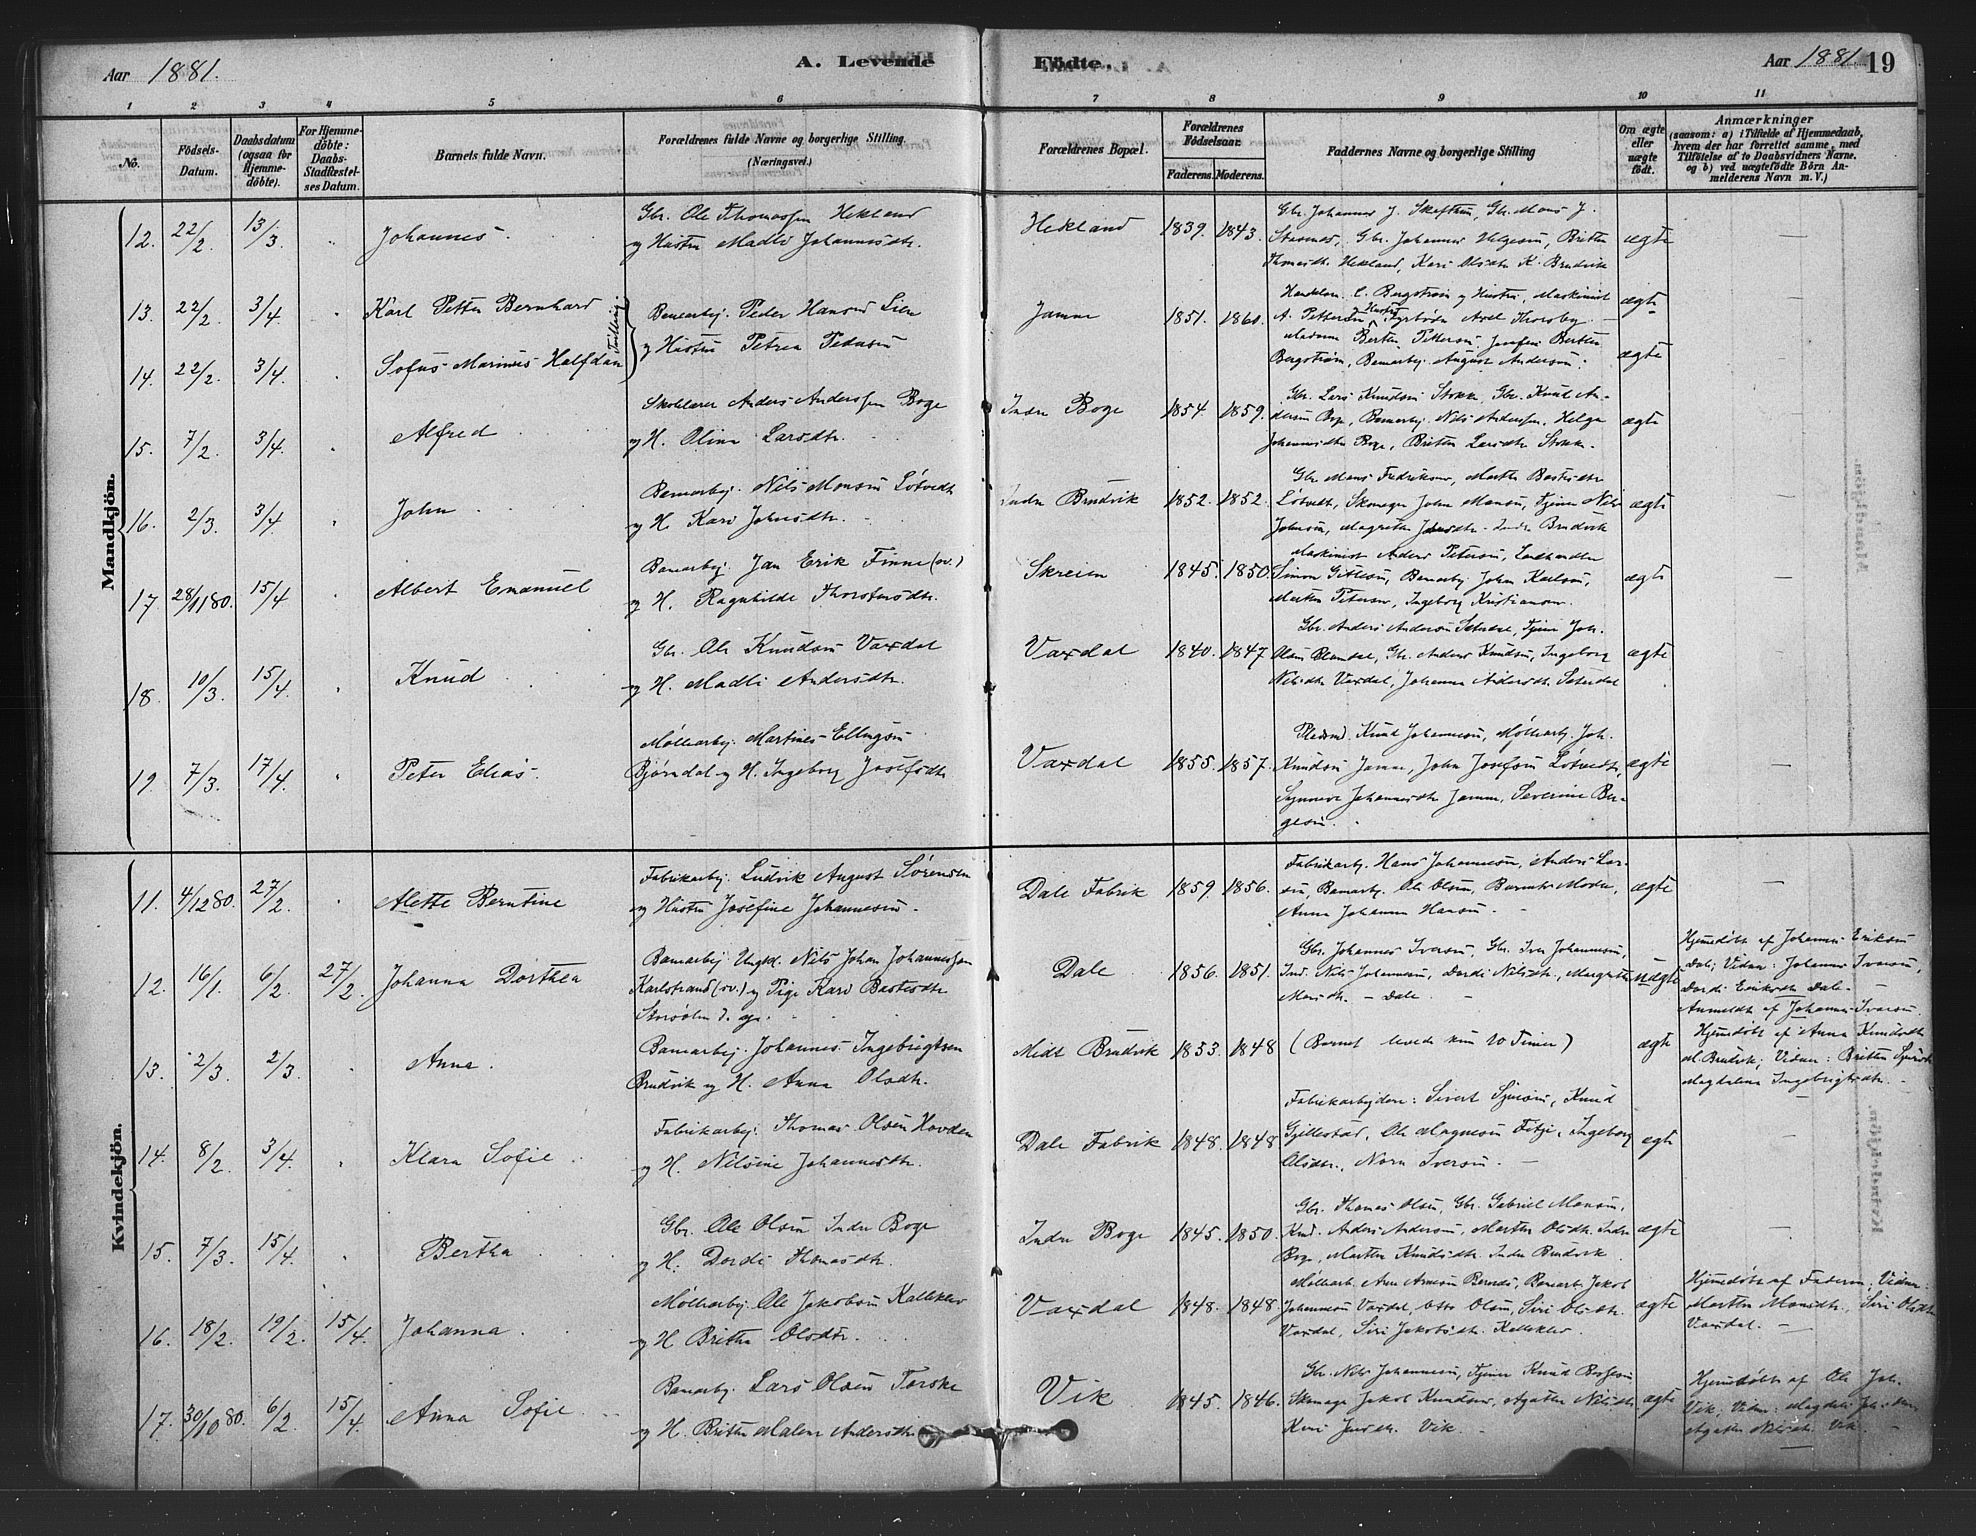 Aar 1881.
A. Levende Födte.
Aar 1881. 19
1 2 3 4 5 6 7 8 9 10 11
No.
Födsels-
Datum.
Daabsdatum
(ogsaa for
Hjemme-
döbte).
For Hjemme-
döbte:
Daabs-
Stadfæstel-
ses Datum.
Barnets fulde Navn.
Forældrenes fulde Navne og borgerlige Stilling
(Næringsvei.)
Forældrenes Bopæl.
Forældrenes
Födselsaar.
Faderens. Moderens.
Faddernes Navne og borgerlige Stilling
Om ægte
eller
uægte
födt.
Anmærkninger
(saasom: a) i Tilfælde af Hjemmedaab,
hvem der har forrettet samme, med
Tilföielse af to Daabsvidners Navne,
og b) ved uægtefödte Börn An-
melderens Navn m. V.)
Mandkjön.
12. 22/2. 13/3. " Johannes.
Gbr. Ole Thomassen Hekland
og Hustru Madli Johannesdtr.
Hekland 1839. 1843.
Gbr. Johannes J. Skaftun, Gbr. Mons J.
Stamnes, Gbr. Johannes Helgesen, Brithe
Thomasdtr. Hekland, Kari Olsdtr. K. Brudvik
ægte
13. 22/2. 3/4. " Karl Petter Bernhard
Tvilling
Banearbej. Peder Hansen Lien
og Hustru Petrea Pedersen
Jamne 1851. 1860.
A. Petterson Hustru, Fyrbøder Axel Thorsby.
ægte
14. 22/2. 3/4. " Sofus Marinus Halfdan
Bergstrøm, Banearbej. August Anderson.
ægte
15. 7/2. 3/4. " Alfred
Skolelærer Anders Anderssen Boge
og H. Olina Larsdtr.
Indre Boge 1854. 1859.
Gbr. Lars Knudsen Stokke, Gbr. Knut An-
dersen Boge, Banearbej. Nils Andersen, Helga
Johannesdtr. Boge, Brithe Larsdtr. Stokke.
ægte
16. 2/3. 3/4. " John
Banearbej. Nils Monsen Løtvedt
og H. Kari Johnsdtr.
Indre Brudvik 1852. 1852.
Gbr. Mons Fredriksen, Marthe Bastesdtr.
Løtvedt, Skomager John Monsen, Tjener Nils
Johnsen, Magrethe Jensdtr. Indre Brudvik
ægte
17 28/11 80. 15/4 " Albert Emanuel
Banearbej. Jan Erik Finne (sv.)
og H. Ragnhilde Thorstensdtr.
Skreien 1845. 1850.
Maskinist Anders Peterson, Landhandler
Simon Gittesen, Banearb. John Karlson,
Marthe Peterson, Ingeborg Kristiansen.
ægte
18. 10/3. 15/4. " Knud
Gbr. Ole Knudsen Vaxdal
og H. Madli Andersdtr.
Vaxdal 1840. 1847.
Gbr. Anders Andersen Seterdal, Tjener Joh.
Olsen, Gbr. Anders Knudsen, Ingeborg
Nilsdtr. Vaxdal, Johanna Andersdtr. Seterdal
ægte
19 7/3. 17/4. " Peter Elias.
Møllearbej. Martines Ellingsen
Bjørndal og H. Ingeborg Josefsdtr.
Vaxdal 1855. 1857.
Knud Johannesen, Møllearb. Joh.
Knudsen Jamne, John Josefsen Løtvedt,
Synneve Johannesdtr. Jamne, Severine Ber-
gesen.
ægte
Kvindekjön.
11. 4/12 80. 27/2. " Alette Berntine
Fabrikarbej. Ludvik August Sørensen
og Hustru Josefine Johannesen.
Dale Fabrik 1859. 1856.
Fabrikarbj. Hans Johannesen, Anders Lar-
sen, Banearbj. Ole Olsen, Barnets Moder,
Anna Johanna Hansen.
ægte
12. 16/1. 6/2. 27/2. Johanna Dorthea
Banearbej. Ungk. Nils Johan Johannessen
Karlstrand (sv.) og Pige Kari Bastesdtr.
Dale 1856. 1851.
Gbr. Johannes Ivarsen, Gbr. Iver Johannesen,
Ind. Nils Johannesen, Dordi Nilsdtr., Margrethe
Monsdtr. — Dale.
uægte
Hjemmedøbt af Johannes Eriksen
Dale; Vidner: Johannes Ivarsen,
Dordi Eriksdtr. Dale.
Anmeldt af Johannes Ivarsen.
13. 2/3. 2/3. " Anna.
Banearbej. Johannes Ingebrigtsen
Brudvik og H. Anna Olsdtr.
Midt Brudvik 1853. 1848
(Barnet levede kun 20 Timer)
ægte
Hjemmedøbt af Anna Knudsdtr.
M. Brudvik; Vidner: Brithe
Magdalena Ingebrigtsdtr.
14. 8/2. 3/4. " Klara Sofie
Fabrikarbej. Thomas Olsen Hovden
og H. Nilsine Johannesdtr.
Dale Fabrik 1848. 1848
Fabrikarbejdere: Sivert Sjursen, Knud
Gjellestad, Ole Magnesen Fitje, Ingeborg
Olsdtr., Nora Iversen.
ægte
15. 7/3. 15/4. " Bertha
Gbr. Ole Olsen Indre Boge
og H. Dordi Thomasdtr.
Indre Boge 1845. 1850.
Gbr. Thomas Olsen, Gbr. Gabriel Monsen,
Anders Andersen, Marthe Olsdtr. Indre
Boge, Marthe Knudsdtr. Indre Brudvik
ægte
16. 18/2. 19/2. 15/4. Johanna
Møllearbej. Ole Jakobsen Kalleklev
og H Brithe Olsdtr.
Vaxdal 1848. 1848
Møllearb. Arne Arnesen, Banearb. Jakob
Johannesen Vaxdal, Olsen, Siri Olsdtr.
Vaxdal, Siri Jakobsdtr. Kalleklev.
ægte
Hjemmedøbt af Faderen. Vidner:
Marthe Monsdtr., Siri Olsdtr.
Vaxdal.
17. 30/10 80. 6/2. 15/4. Anna Sofie
Banearbj. Lars Olsen Torske
og H. Brithe Malene Andersdtr.
Vik 1845. 1846.
Gbr. Nils Johannesen, Tjener Knud
Skomager Jakob Knudsen, Agathe Nilsdtr.
Vik.
ægte
Hjemmedøbt af Ole Joh.
Vik; Vidner: Magdeli
Agathe Nilsdtr. Vik.